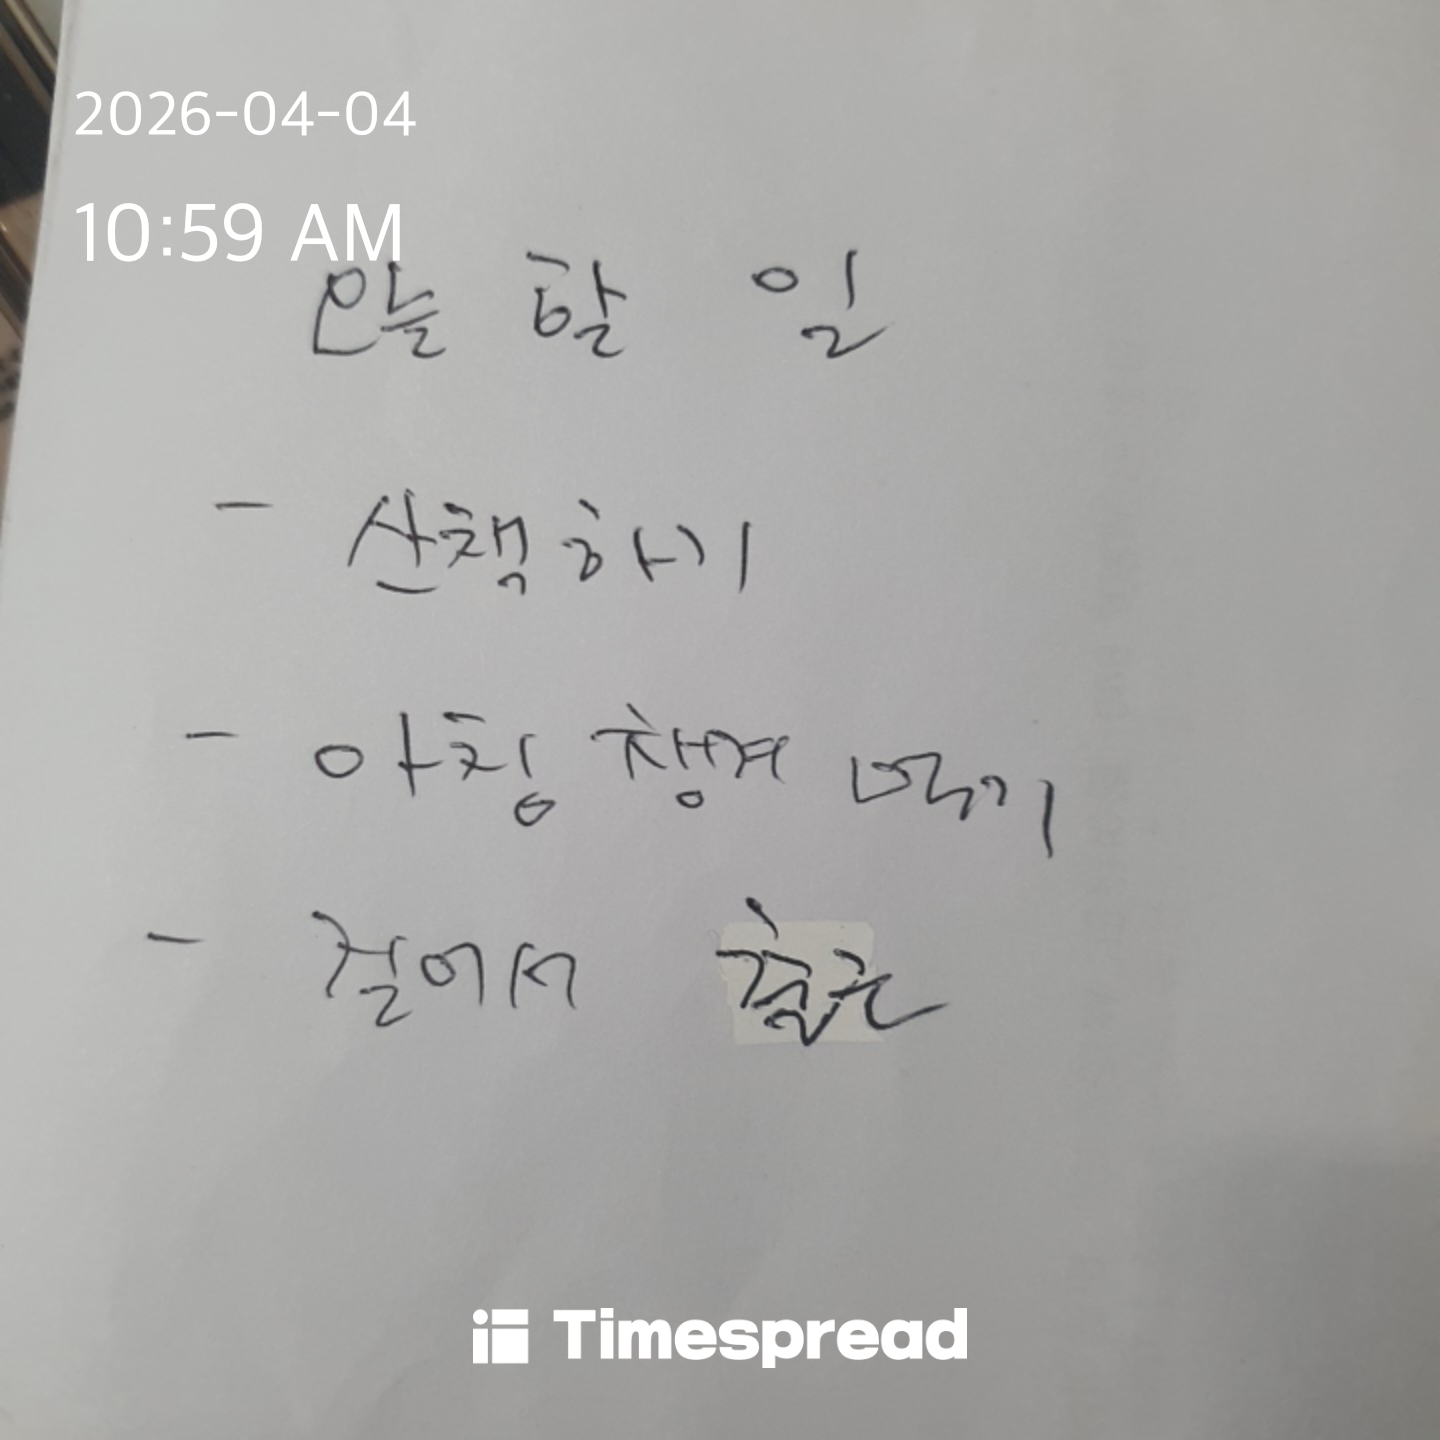 2026-04-04
10:59 AM
오늘 할 일
- 산책하기
- 아침 챙겨 먹기
- 걸어서 출근
Timespread